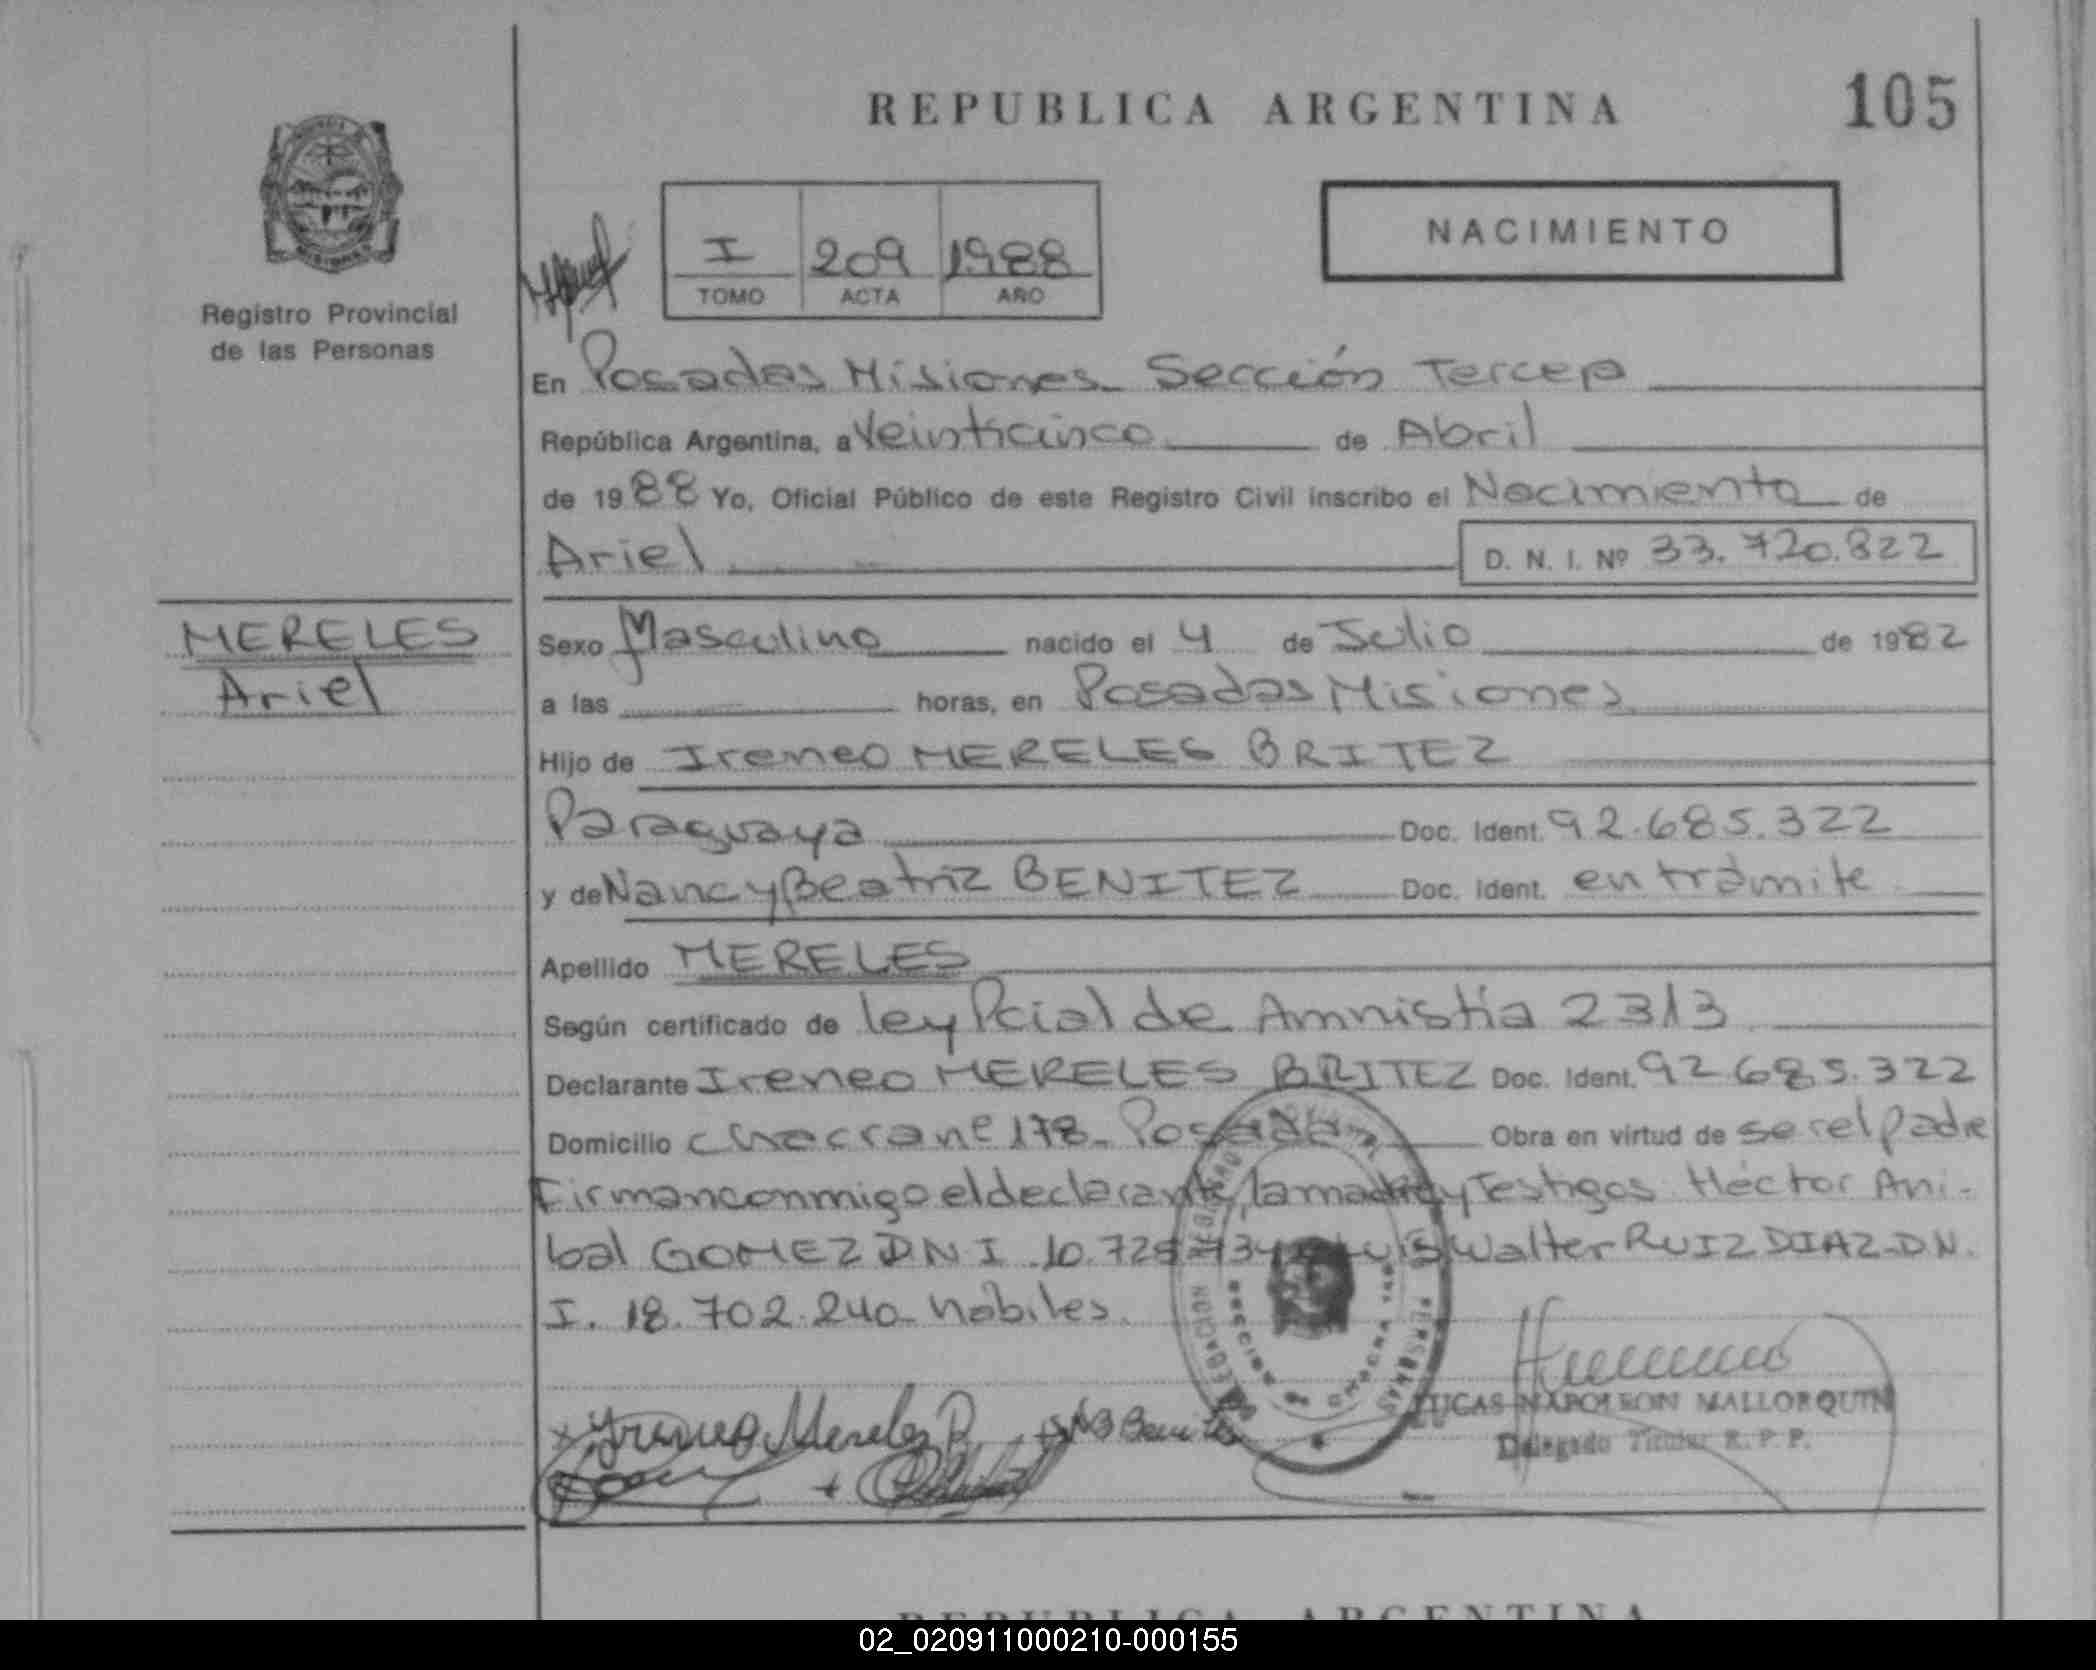 REPUBLICA ARGENTINA
105
NACIMIENTO
I 209 1988
TOMO ACTA AÑO
Registro Provincial
de las Personas
En Posadas Misiones Sección Tercera
República Argentina, a Veinticinco de Abril
de 1988 Yo, Oficial Público de este Registro Civil inscribo el Nacimiento de
Ariel D. N. I. Nº 33.720.822
MERELES
Ariel
Sexo Masculino nacido el 4 de Julio de 1982
a las horas, en Posadas Misiones
Hijo de Ireneo MERELES BRITEZ
Paraguaya Doc. Ident. 92.685.322
y de Nancy Beatriz BENITEZ Doc. Ident. en trámite
Apellido MERELES
Según certificado de ley Pcial de Amnistía 2313
Declarante Ireneo MERELES BRITEZ Doc. Ident. 92 685.322
Domicilio Chacra nº 178 Posadas Obra en virtud de ser el padre
Firman conmigo el declarante, la madre y Testigos Héctor Ani-
bal GOMEZ DNI 10.725 Luis Walter RUIZ DIAZ D N.
I. 18.702.240 hábiles.
LUCAS NAPOLEON MALLORQUIN
Delegado Titular R. P. P.
REPUBLICA ARGENTINA
02_020911000210-000155